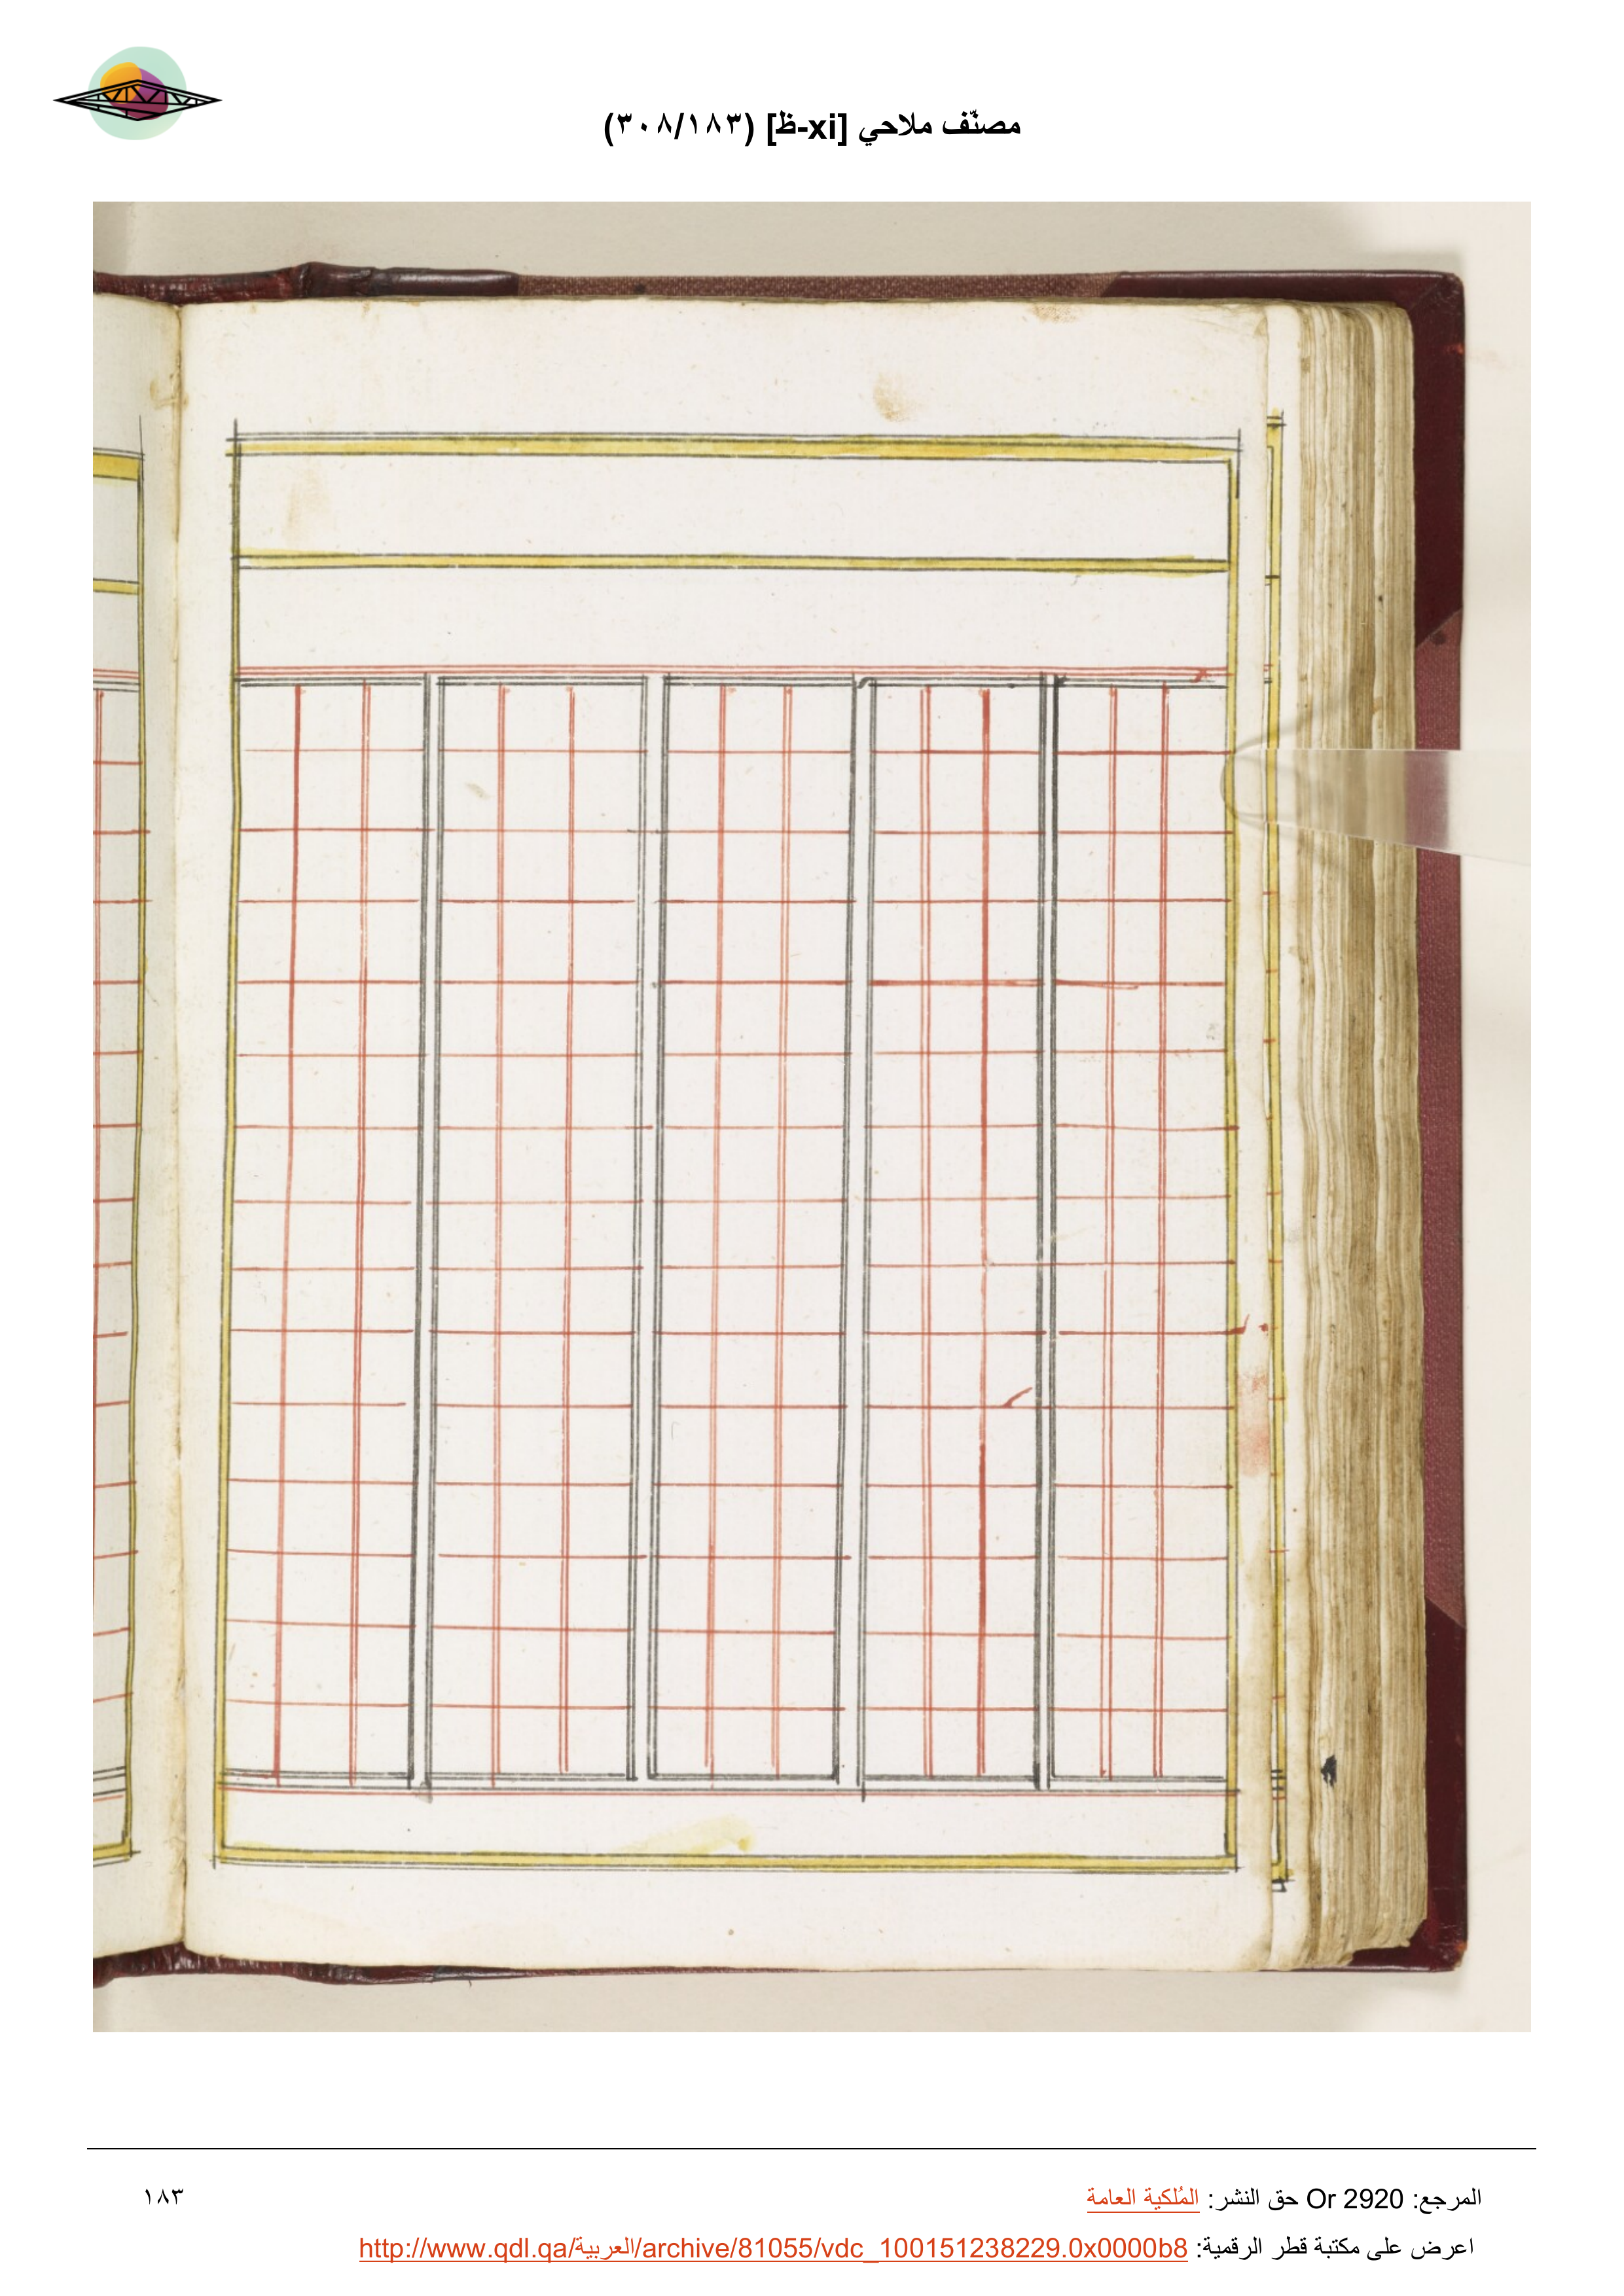 مصنّف ملاحي [xi-ظ] (٣٠٨/١٨٣)
المرجع: Or 2920 حق النشر: المُلكية العامة
١٨٣
اعرض على مكتبة قطر الرقمية: http://www.qdl.qa/العربية/archive/81055/vdc_100151238229.0x0000b8